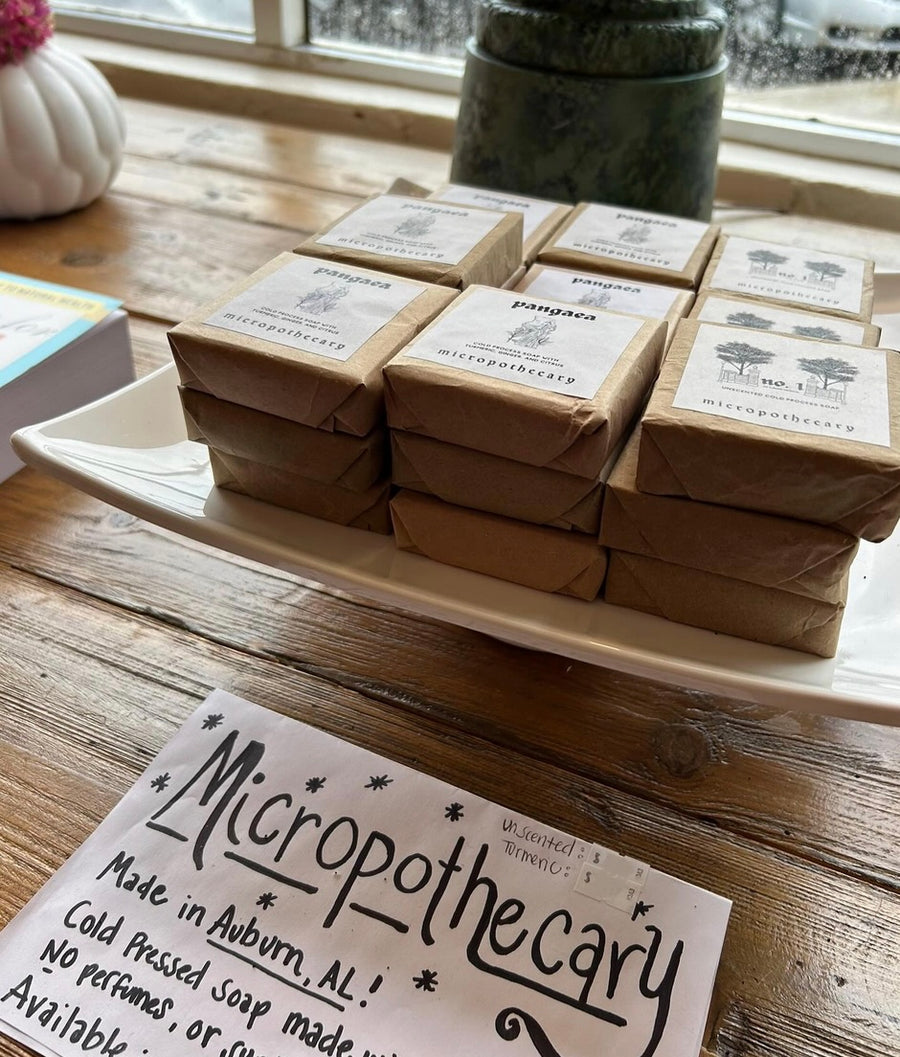 TO NATURAL HEALTH
pangaea
pangaea
micropothecary
pangaea
micropothecary
no. 1
micropothecary
pangaea
COLD PROCESS SOAP WITH
TURMERIC, GINGER, AND CITRUS
micropothecary
pangaea
pangaea
COLD PROCESS SOAP WITH
TURMERIC, GINGER, AND CITRUS
micropothecary
no. 1
UNSCENTED COLD PROCESS SOAP
micropothecary
Micropothecary
unscented: $
Turmeric: $
Made in Auburn, AL!
Cold Pressed soap made
No perfumes, or
Available